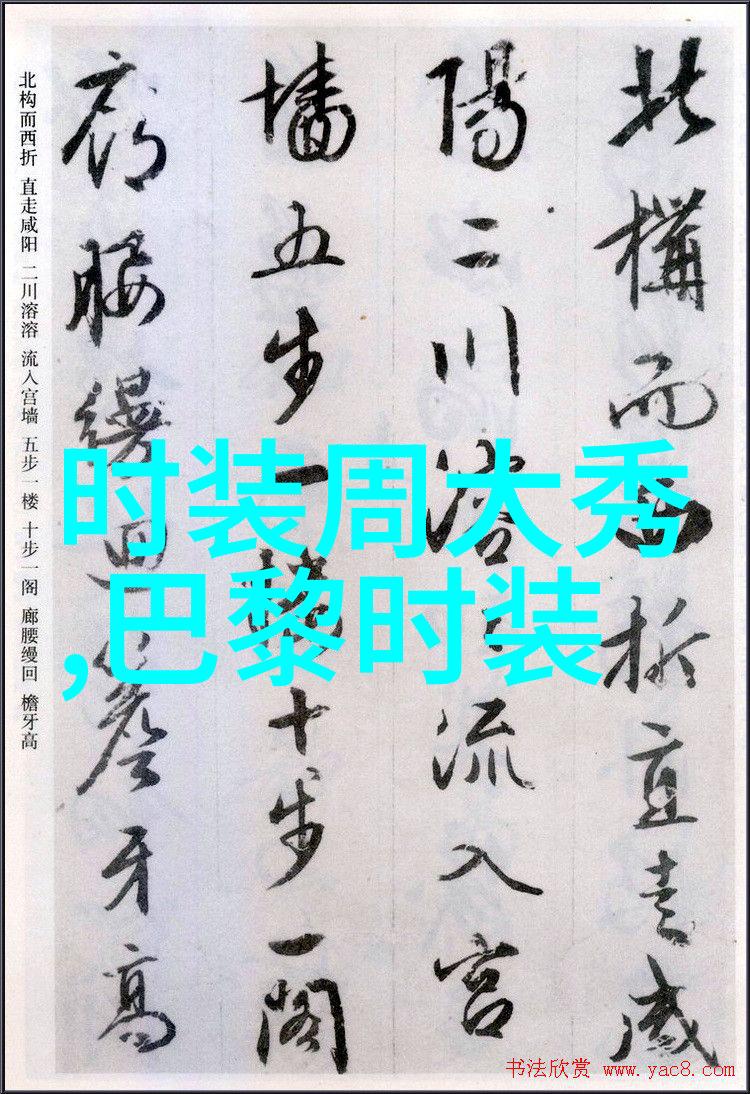 北構而西折直走咸
陽二川溶〻流入宮
墻五步一樓十步一閣
廊腰縵迴簷牙高
北构而西折 直走咸阳 二川溶溶 流入宫墙 五步一楼 十步一阁 廊腰缦回 檐牙高
时装周大秀
,巴黎时装
书法欣赏 www.yac8.com